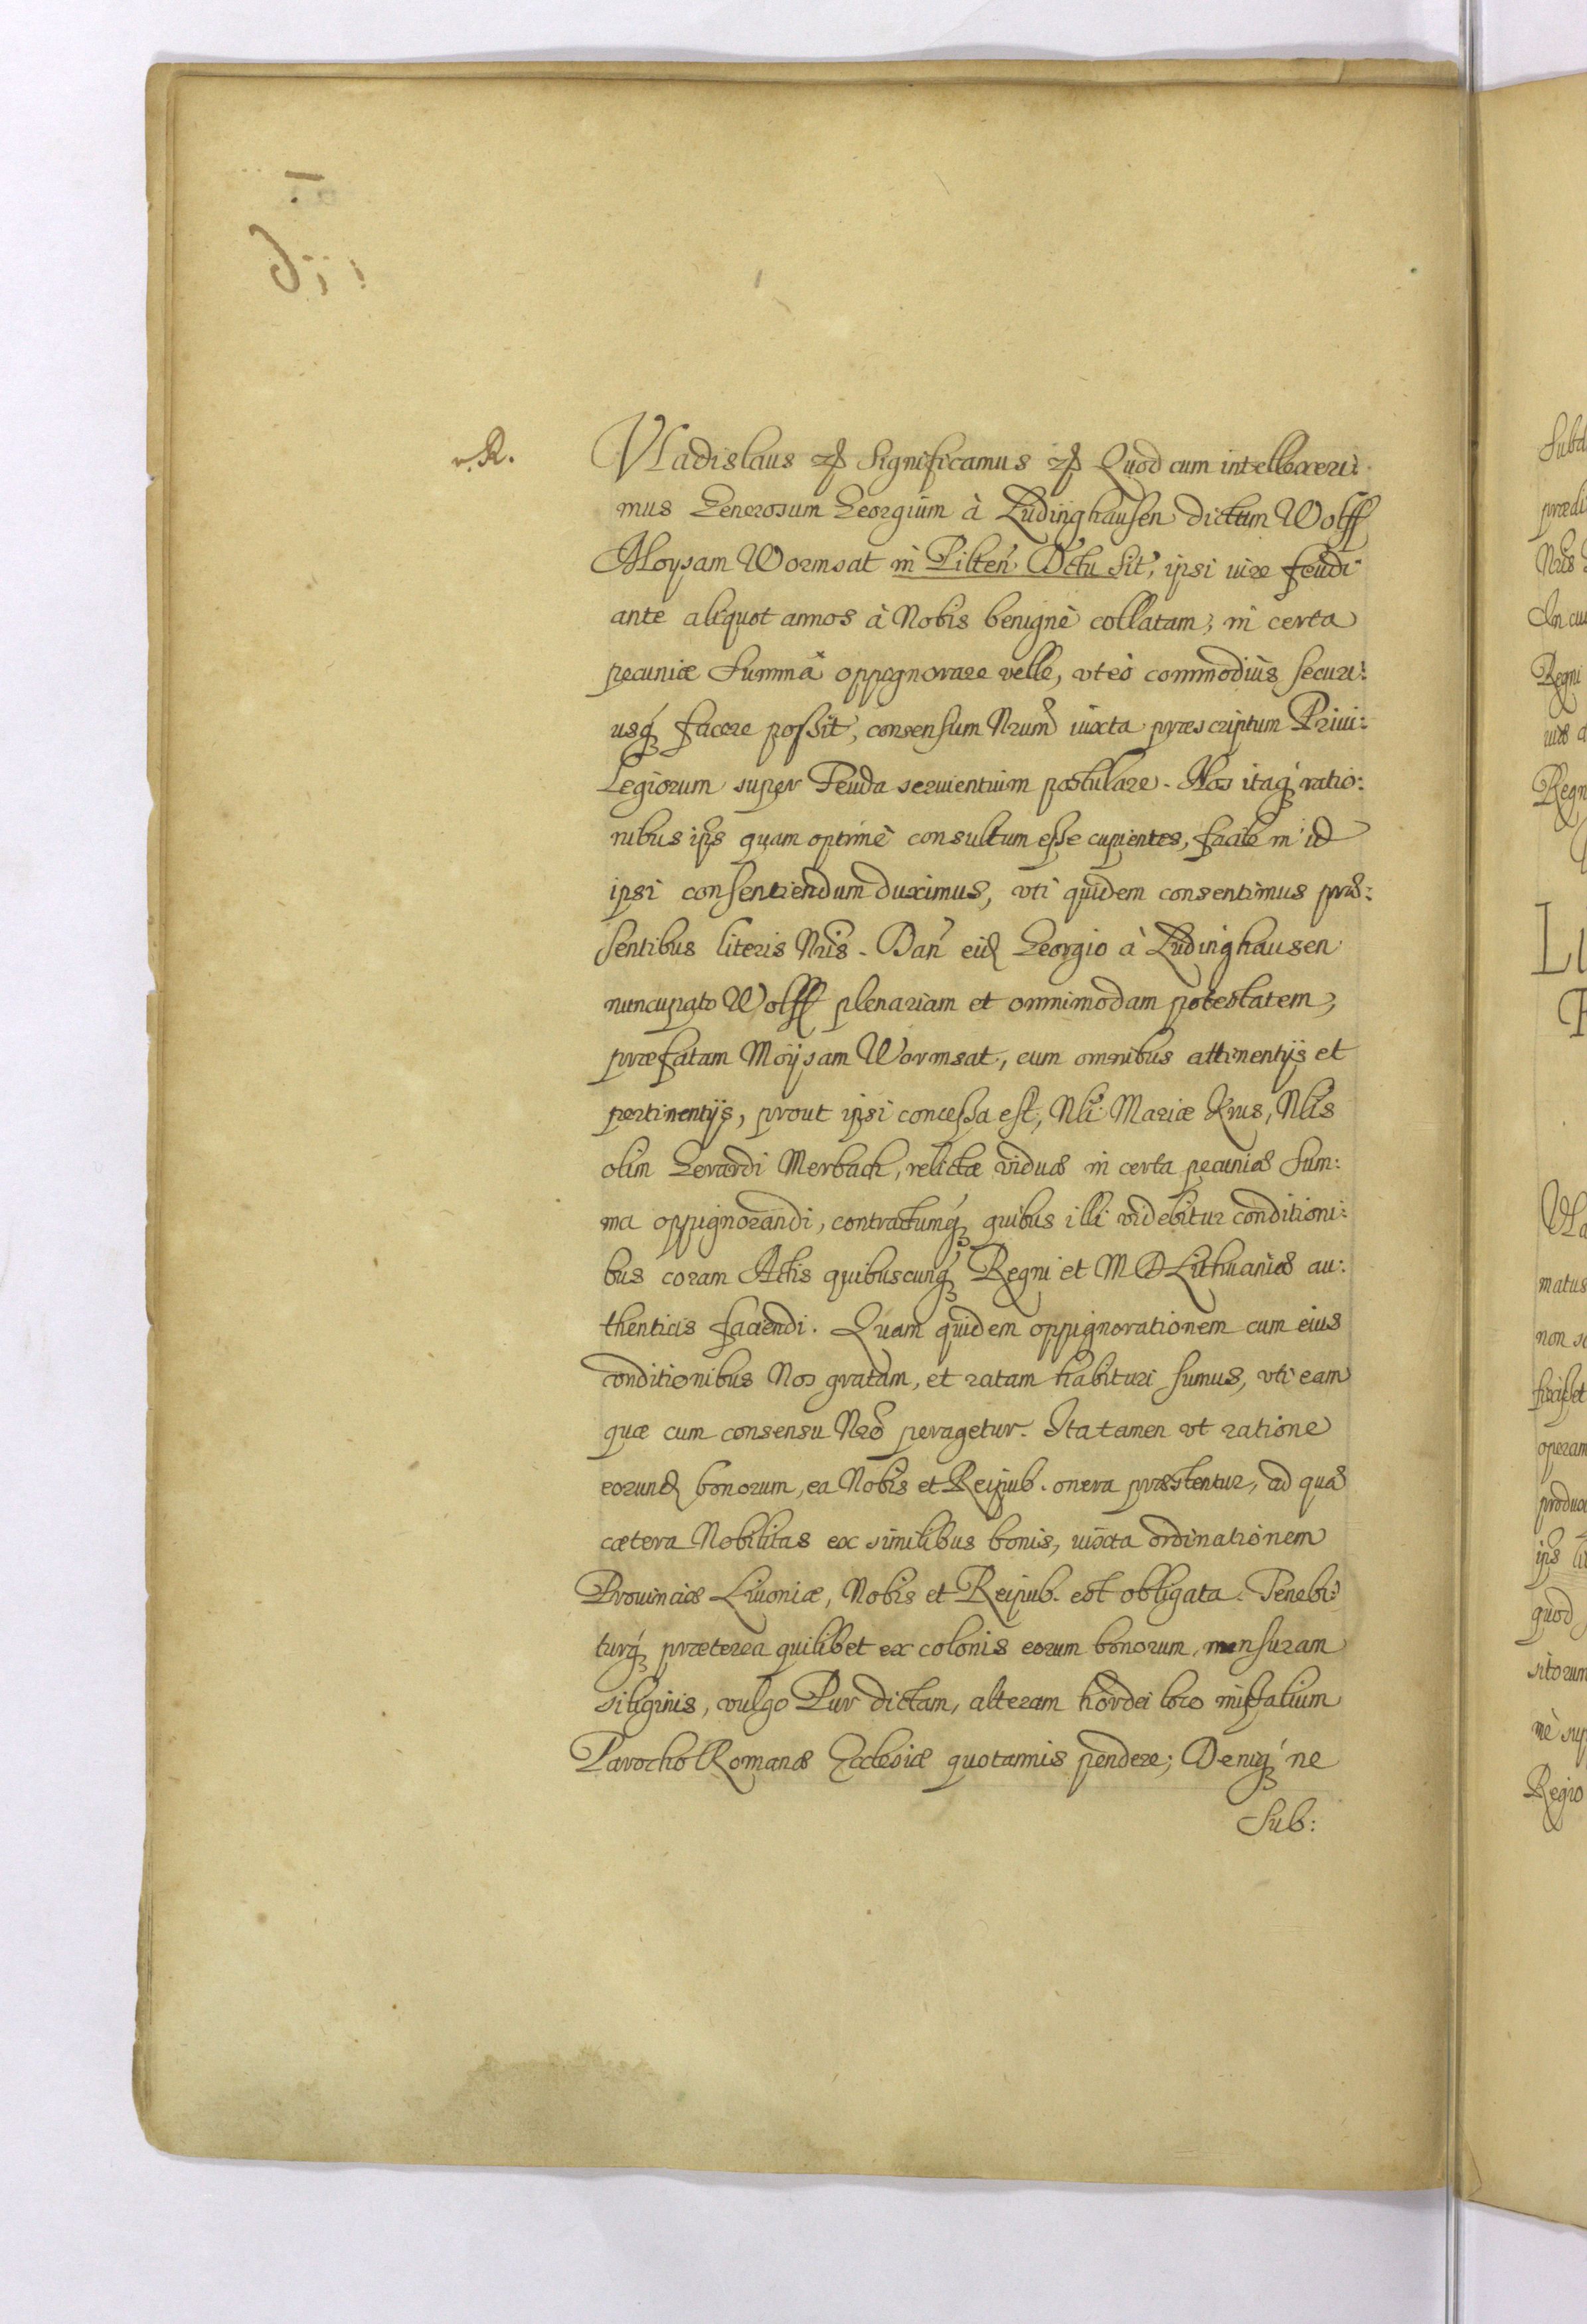 v. R.
Vladislaus etc Significamus etc Quod cum intellexeri:
mus Generosum Georgium à Lüdinghausen dictum Wolff
Moysam Wormsat in Pilten̄. Dctu sit, ipsi iure feudi
ante aliquot annos à Nobis benignè collatam, in certa
pecuniæ Summa oppignorare velle, vt eò commodiùs securi:
usq; facere possit, consensum Nrum iuxta præscriptum Priui:
legiorum super Feuda seruientium postulare. Nos itaq; ratio:
nibus ips quam optimè consultum esse cupientes, facile in id
ipsi consentiendum duximus, vti quidem consentimus præ:
sentibus literis Nris. Dan̄ eid Georgio à Lüdinghausen
nuncupato Wolff plenariam et omnimodam potestatem,
præfatam Moysam Wormsat, cum omnibus attinentijs et
pertinentijs, prout ipsi concessa est, Nli Mariæ Krus, Nlis
olim Gerardi Merbach, relictæ viduæ in certa pecuniæ sum:
ma oppignorandi, contractumq; quibus illi videbitur conditioni:
bus coram Actis quibuscunq; Regni et M D Lithuaniæ au:
thenticis faciendi. Quam quidem oppignorationem cum eius
conditionibus Nos gratam, et ratam habituri sumus, vti eam
quæ cum consensu Nro peragetur. Ita tamen vt ratione
eorund bonorum, ea Nobis et Reipub. onera præstentur, ad quæ
cætera Nobilitas ex similibus bonis, iuxta ordinationem
Prouinciæ Liuoniæ, Nobis et Reipub. est obligata. Tenebi:
turq; præterea quilibet ex colonis eorum bonorum, mensuram
siliginis, vulgo Pur dictam, alteram hordei loco missalium
Parocho Romanæ Ecclesiæ quotannis pendere; Deniq; ne
Sub: